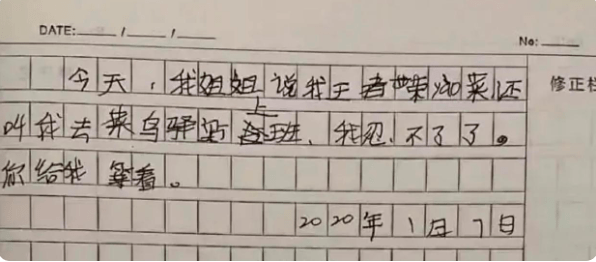 DATE: / /
No:
修正栏
今天，我姐姐说我王者荣菜还
叫我去菜鸟驿站上班，我忍不了了。
你给我等着。
2020年1月7日